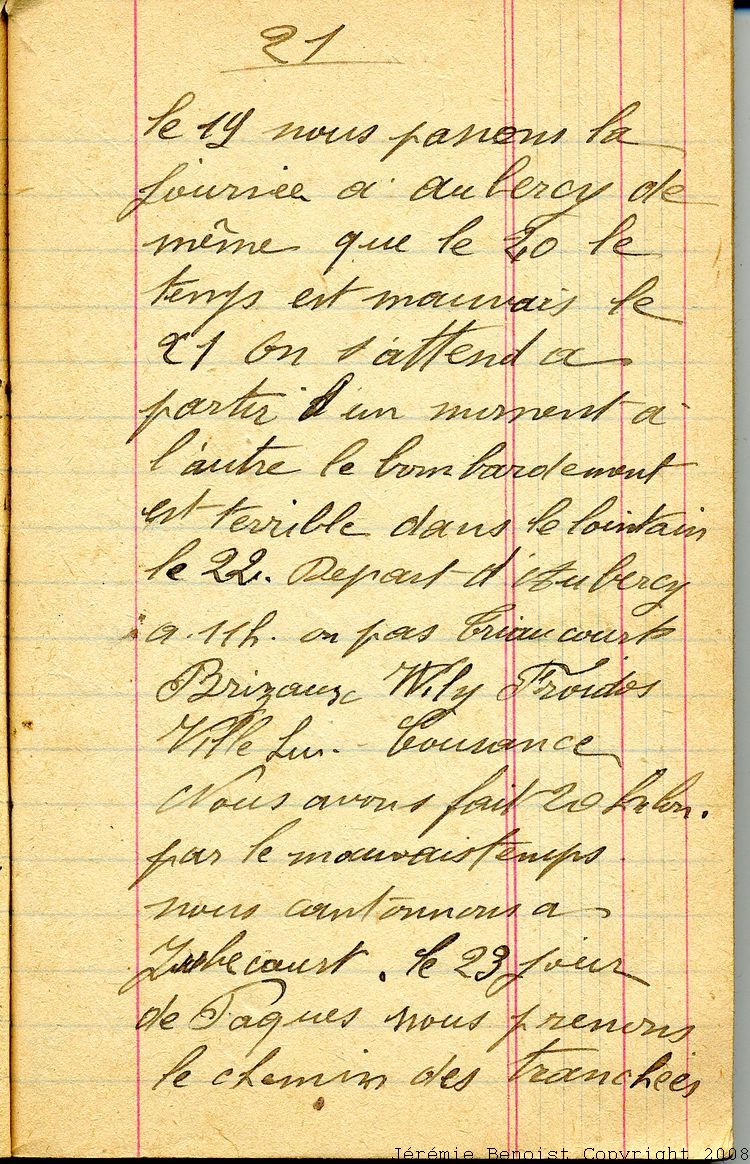 21
le 19 nous passons la
journée a aubercy de
même que le 20 le
temps est mauvais le
21 On s'attend a
partir d'un moment a
l'autre le bombardement
est terrible dans le lointain
le 22. Depart d'Aubercy
a 11h. on pas Triaucourt
Brizaux Wily Froidos
Ville sur. Cousance
Nous avons fait 20 kilom.
par le mauvais temps.
nous cantonnons a
Jubecourt. le 23 jour
de Paques nous prenons
le chemin des tranchées
Jérémie Benoist Copyright 2008